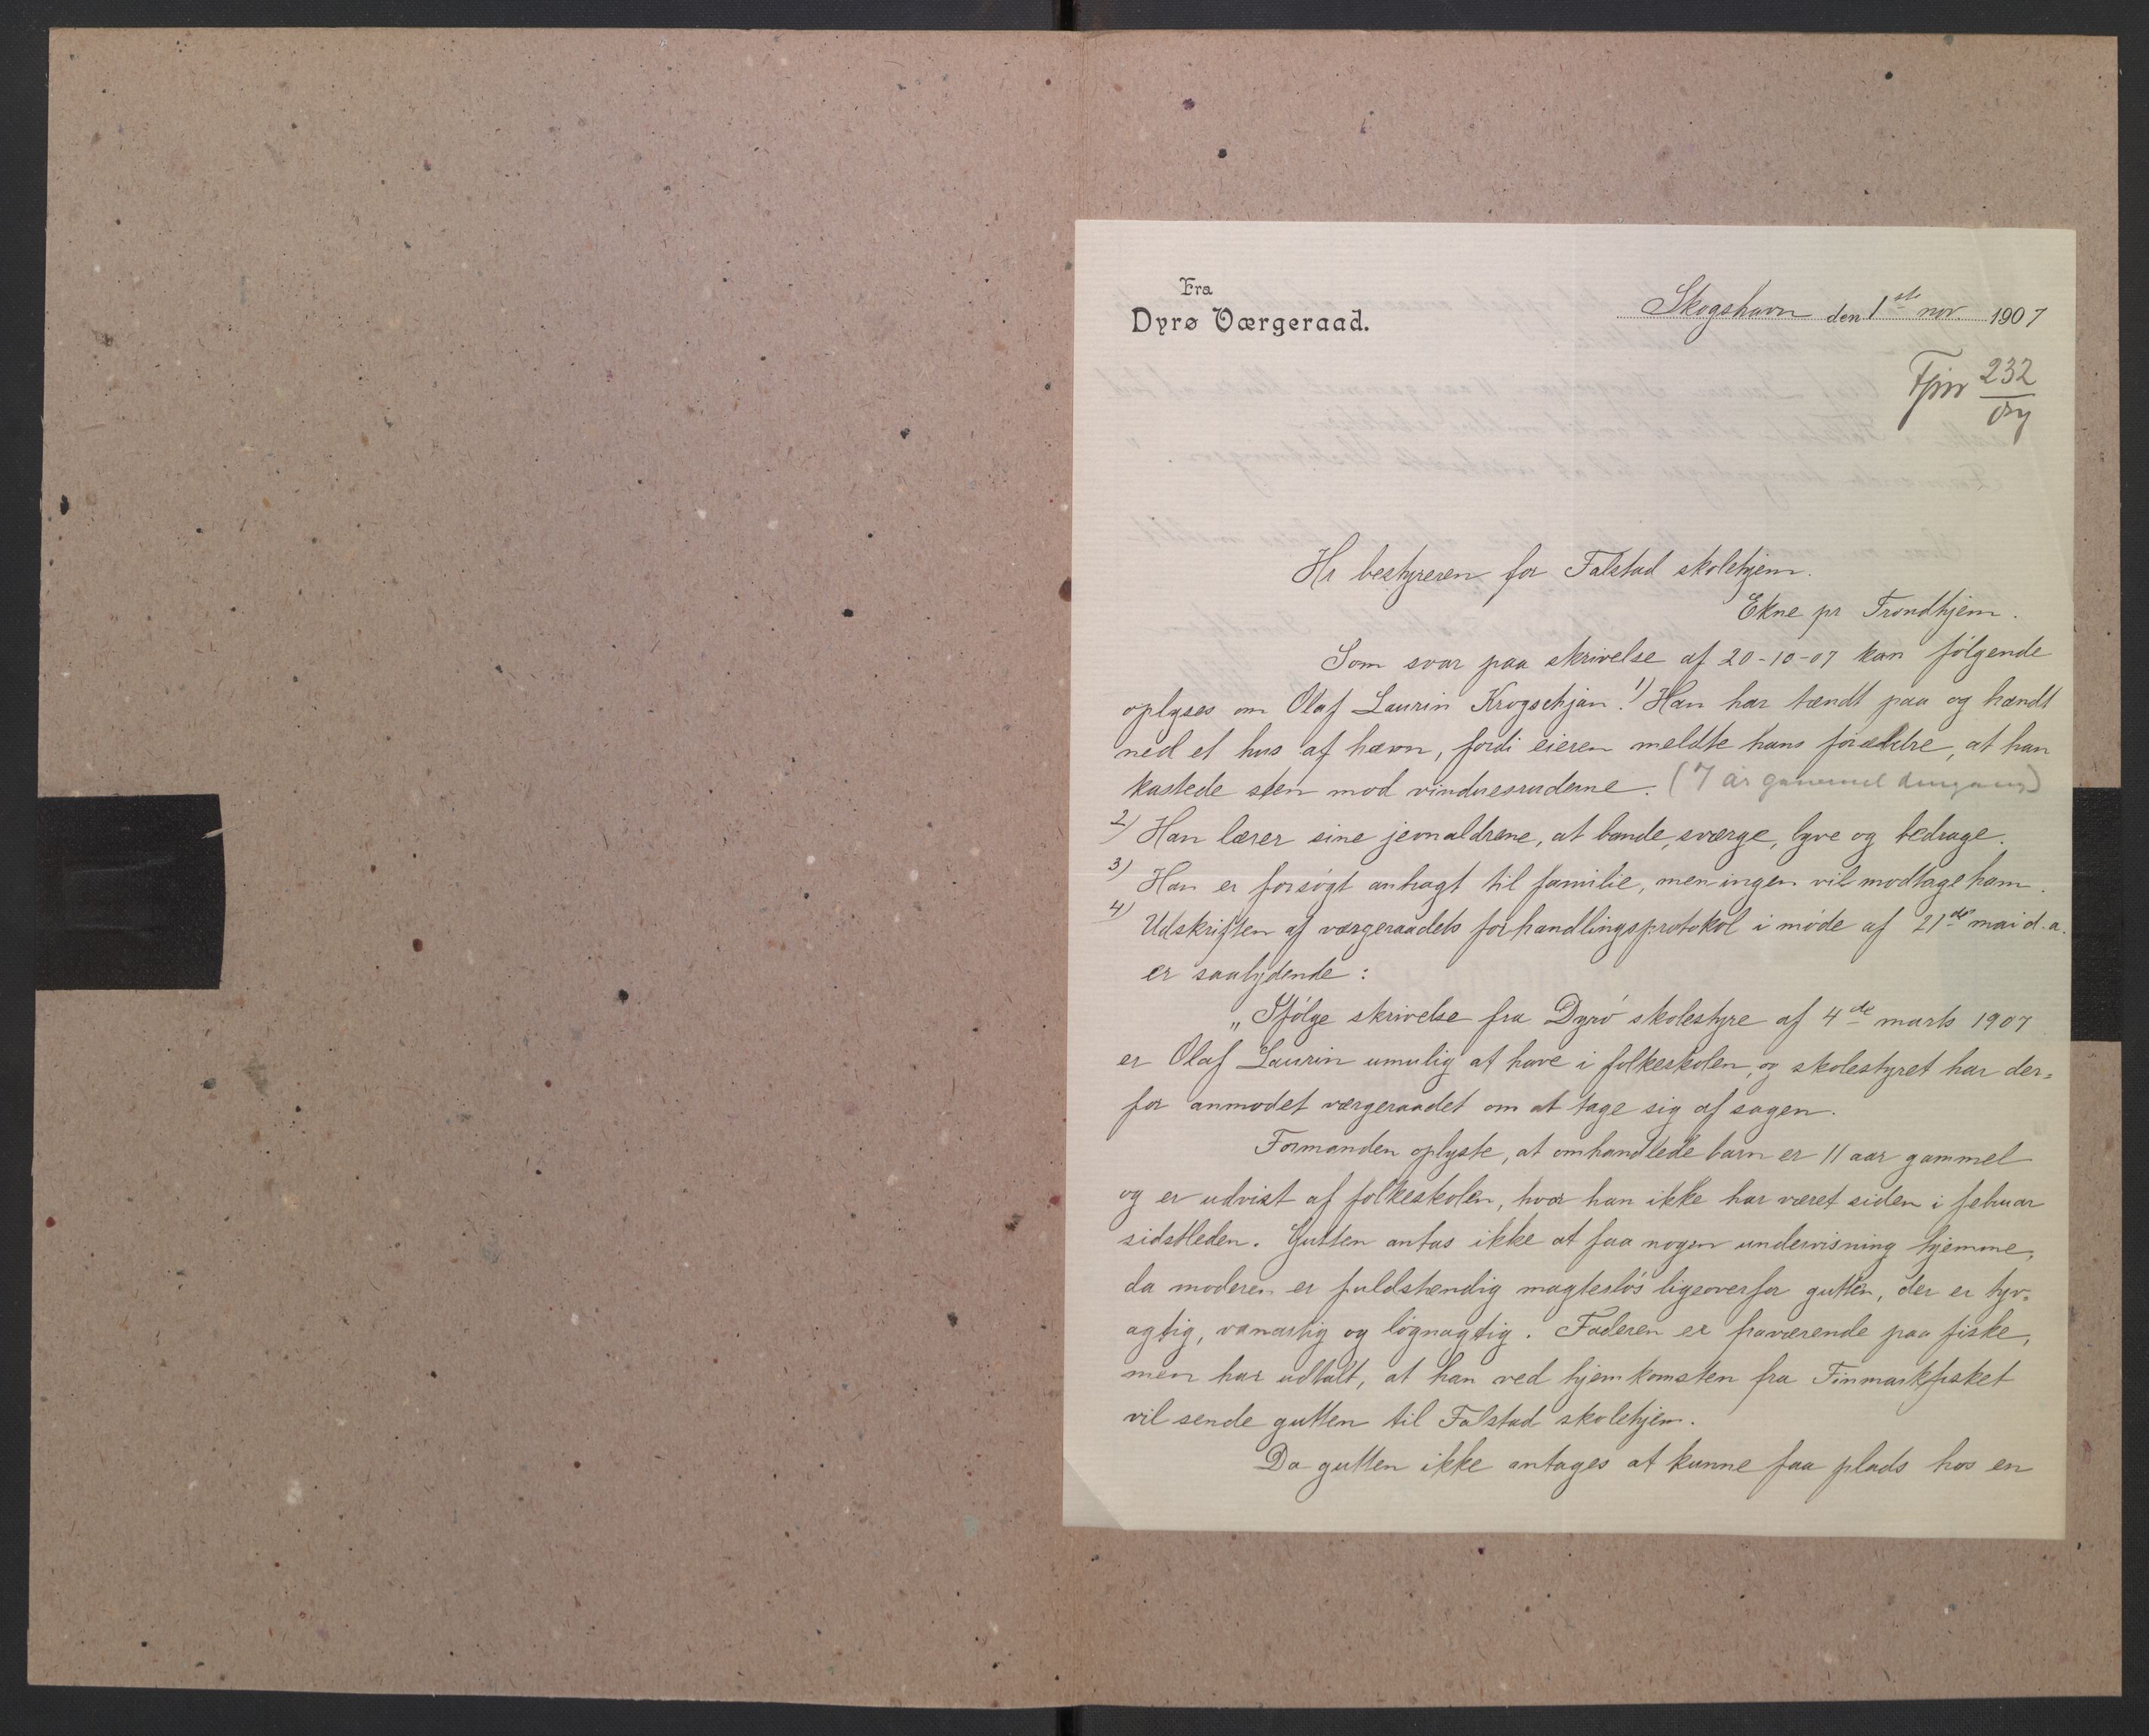 Fra
Dyrø Værgeraad.
Skogshavn den 1ste nov. 1907
232
Hr bestyreren for Falstad skolehjem.
Ekne pr Trondhjem.
Som svar paa skrivelse af 20-10-07 kan følgende
oplyses om Olaf Laurin Krogschjan. 1) Han har tændt paa og brændt
ned et hus af hævn, fordi eieren meldte hans forældre, at han
kastede sten mod vinduesruderne. (7 år gammel dengang)
2) Han lærer sine jevnaldrene, at bande, sværge, lyve og bedrage.
3) Han er forsøgt anbragt til familie, men ingen vil modtage ham.
4) Udskriften af værgeraadets forhandlingsprotokol i møde af 21de mai d.a.
er saalydende:
„Ifølge skrivelse fra Dyrø skolestyre af 4de marts 1907
er Olaf Laurin umulig at have i folkeskolen, og skolestyret har der=
for anmodet værgeraadet om at tage sig af sagen.
Formanden oplyste, at omhandlede barn er 11 aar gammel
og er udvist af folkeskolen, hvor han ikke har været siden i februar
sidstleden. Gutten antas ikke at faa nogen undervisning hjemme,
da moderen er fuldstændig magtesløs ligeoverfor gutten, der er tyv=
agtig, vanartig og løgnagtig. Faderen er fraværende paa fiske,
men har udtalt, at han ved hjemkomsten fra Finmarkfisket
vil sende gutten til Falstad skolehjem.
Da gutten ikke antages at kunne faa plads hos en